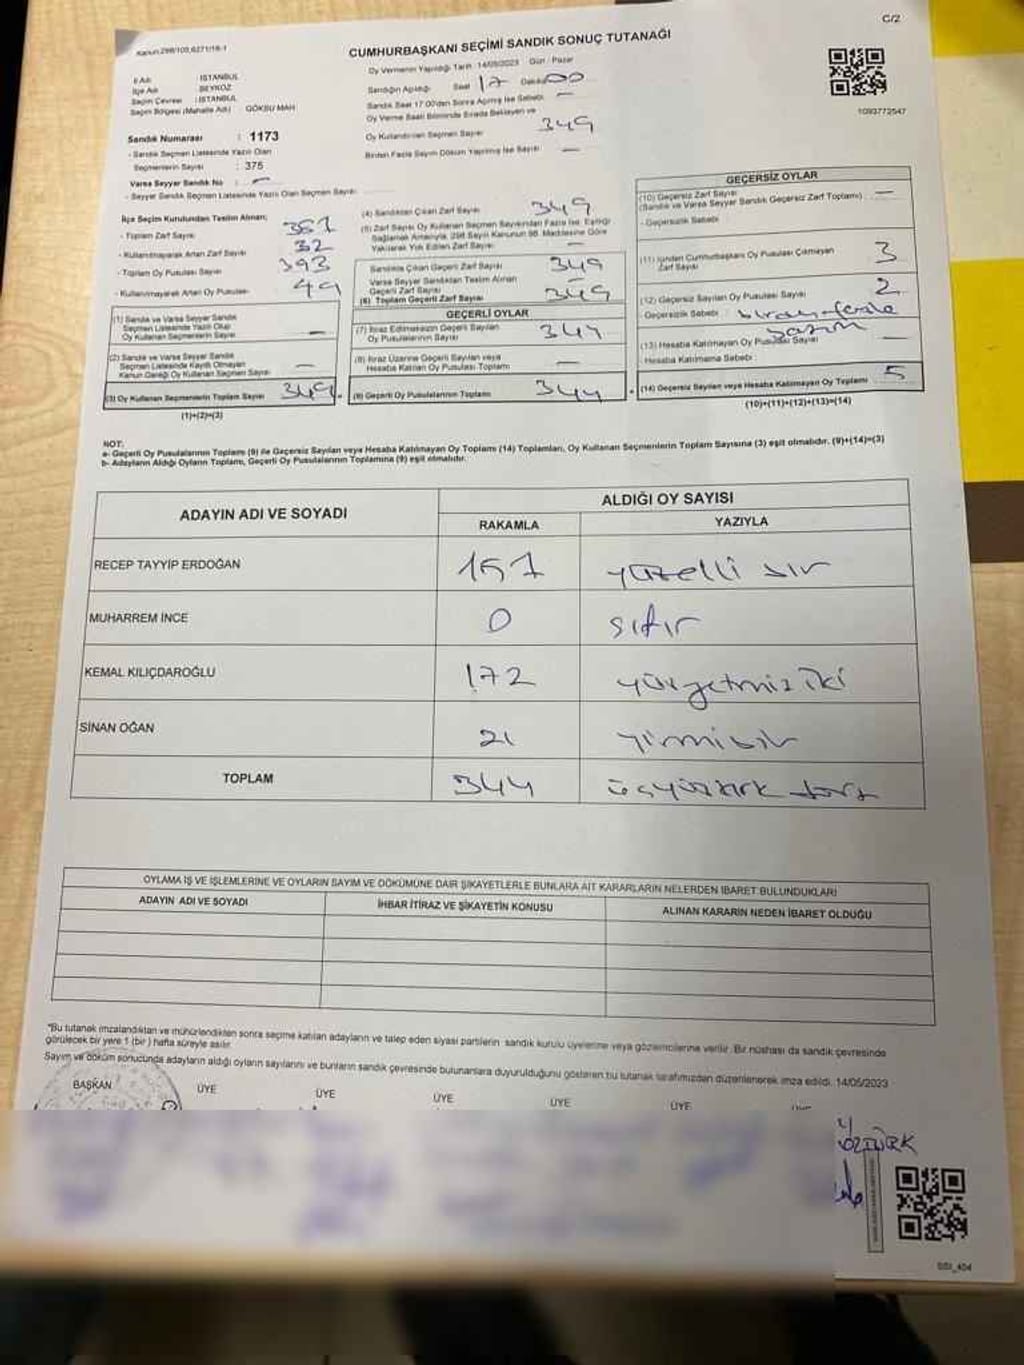 C/2
Kanun:298/105,6271/16-1
CUMHURBAŞKANI SEÇİMİ SANDIK SONUÇ TUTANAĞI
İl Adı : İSTANBUL
İlçe Adı : BEYKOZ
Seçim Çevresi : İSTANBUL
Seçim Bölgesi (Mahalle Adı) GÖKSU MAH
Sandık Numarası : 1173
- Sandık Seçmen Listesinde Yazılı Olan
Seçmenlerin Sayısı : 375
Varsa Seyyar Sandık No : —
- Seyyar Sandık Seçmen Listesinde Yazılı Olan Seçmen Sayısı
Oy Vermenin Yapıldığı Tarih : 14/05/2023 Gün : Pazar
Sandığın Açıldığı Saat 17 Dakika 00
Sandık Saat 17:00'den Sonra Açılmış İse Sebebi —
Oy Verme Saati Bitiminde Sırada Bekleyen ve
Oy Kullandırılan Seçmen Sayısı 349
Birden Fazla Sayım Döküm Yapılmış İse Sayısı —
1093772547
İlçe Seçim Kurulundan Teslim Alınan;
- Toplam Zarf Sayısı
- Kullanılmayarak Artan Zarf Sayısı 32
- Toplam Oy Pusulası Sayısı 393
- Kullanılmayarak Artan Oy Pusulası
(1) Sandık ve Varsa Seyyar Sandık
Seçmen Listesinde Yazılı Olup
Oy Kullanan Seçmenlerin Sayısı —
(2) Sandık ve Varsa Seyyar Sandık
Seçmen Listesinde Kayıtlı Olmayan
Kanun Gereği Oy Kullanan Seçmen Sayısı —
(3) Oy Kullanan Seçmenlerin Toplam Sayısı 349
(1)+(2)=(3)
(4) Sandıktan Çıkan Zarf Sayısı 349
(5) Zarf Sayısı Oy Kullanan Seçmen Sayısından Fazla İse, Eşitliği
Sağlamak Amacıyla, 298 Sayılı Kanunun 98. Maddesine Göre
Yakılarak Yok Edilen Zarf Sayısı —
Sandıkta Çıkan Geçerli Zarf Sayısı 349
Varsa Seyyar Sandıktan Teslim Alınan
Geçerli Zarf Sayısı
(6) Toplam Geçerli Zarf Sayısı 349
GEÇERLİ OYLAR
(7) İtiraz Edilmeksizin Geçerli Sayılan
Oy Pusulalarının Sayısı 344
(8) İtiraz Üzerine Geçerli Sayılan veya
Hesaba Katılan Oy Pusulası Toplamı —
(9) Geçerli Oy Pusulalarının Toplamı 344
GEÇERSİZ OYLAR
(10) Geçersiz Zarf Sayısı —
(Sandık ve Varsa Seyyar Sandık Geçersiz Zarf Toplamı)
- Geçersizlik Sebebi
(11) İçinden Cumhurbaşkanı Oy Pusulası Çıkmayan
Zarf Sayısı 3
(12) Geçersiz Sayılan Oy Pusulası Sayısı 2
- Geçersizlik Sebebi : birden fazla
(13) Hesaba Katılmayan Oy Pusulası Sayısı —
- Hesaba Katılmama Sebebi
(14) Geçersiz Sayılan veya Hesaba Katılmayan Oy Toplamı 5
(10)+(11)+(12)+(13)=(14)
NOT:
a- Geçerli Oy Pusulalarının Toplamı (9) ile Geçersiz Sayılan veya Hesaba Katılmayan Oy Toplamı (14) Toplamları, Oy Kullanan Seçmenlerin Toplam Sayısına (3) eşit olmalıdır. (9)+(14)=(3)
b- Adayların Aldığı Oyların Toplamı, Geçerli Oy Pusulalarının Toplamına (9) eşit olmalıdır.
ADAYIN ADI VE SOYADI
ALDIĞI OY SAYISI
RAKAMLA YAZIYLA
RECEP TAYYİP ERDOĞAN 151 yüzelli bir
MUHARREM İNCE 0 sıfır
KEMAL KILIÇDAROĞLU 172 yüzyetmiş iki
SİNAN OĞAN 21 yirmibir
TOPLAM 344 üçyüzkırk dört
OYLAMA İŞ VE İŞLEMLERİNE VE OYLARIN SAYIM VE DÖKÜMÜNE DAİR ŞİKAYETLERLE BUNLARA AİT KARARLARIN NELERDEN İBARET BULUNDUKLARI
ADAYIN ADI VE SOYADI İHBAR İTİRAZ VE ŞİKAYETİN KONUSU ALINAN KARARIN NEDEN İBARET OLDUĞU
"Bu tutanak imzalandıktan ve mühürlendikten sonra seçime katılan adayların ve talep eden siyasi partilerin sandık kurulu üyelerine veya gözlemcilerine verilir. Bir nüshası da sandık çevresinde
görülecek bir yere 1 (bir) hafta süreyle asılır.
Sayım ve döküm sonucunda adayların aldığı oyların sayılarını ve bunların sandık çevresinde bulunanlara duyurulduğunu gösteren bu tutanak tarafımızdan düzenlenerek imza edildi. 14/05/2023
BAŞKAN ÜYE ÜYE ÜYE ÜYE ÜYE
ÖZTÜRK
SSI_404